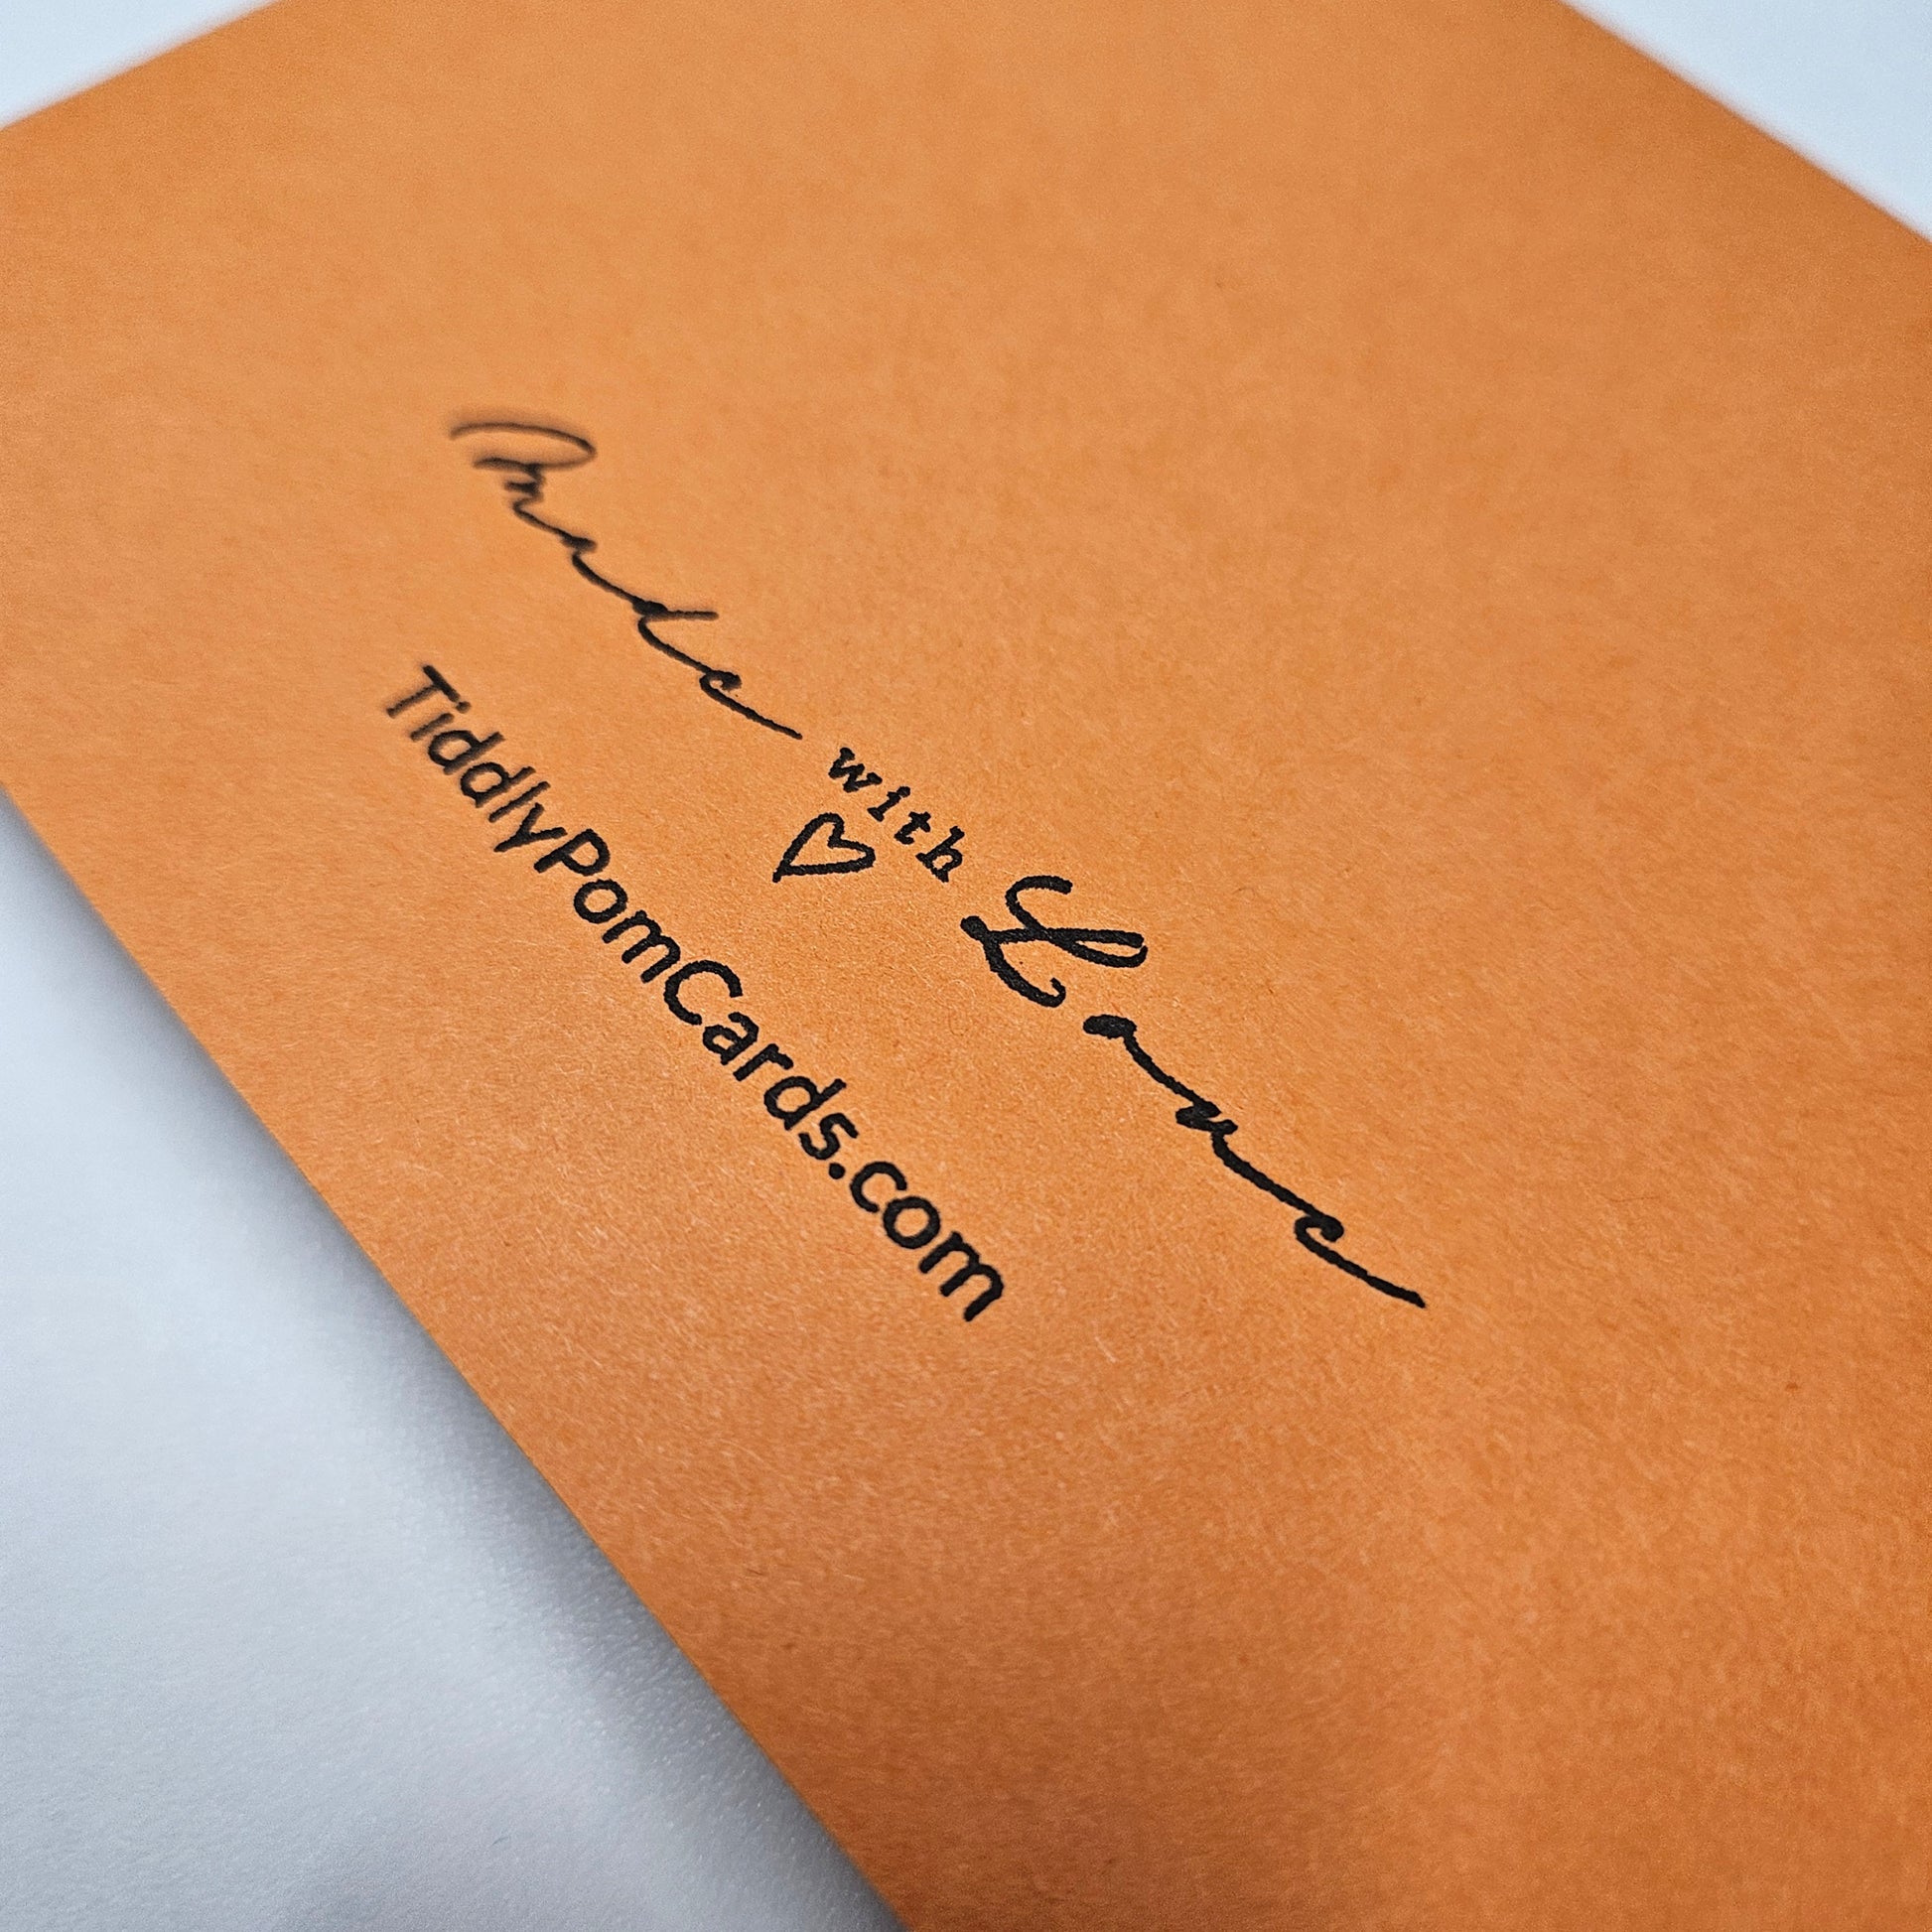 made with Love
TiddlyPomCards.com